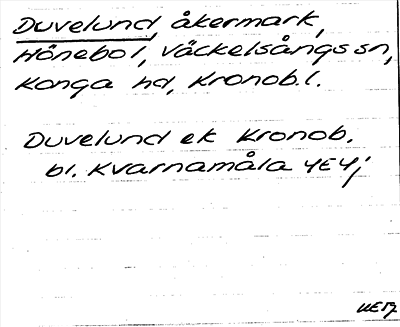 Duvelund, åkermark,
Hönebol, Väckelsångs sn,
Konga hd, Kronob.l.
Duvelund ek Kronob.
bl. Kvarnamåla 4E4j